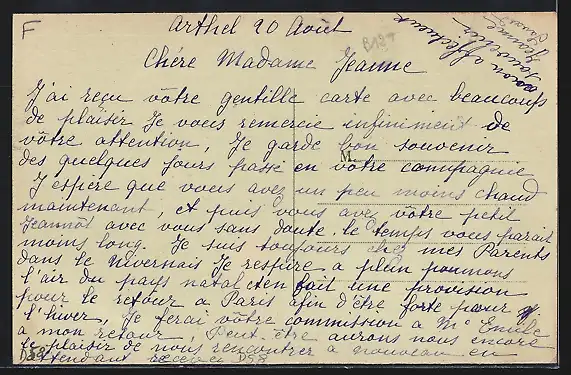 F
Arthel 20 Août
B129
Chére Madame Jeanne
J'ai reçu vôtre gentille carte avec beaucoup
de plaisir Je vous remercie infiniment de
vôtre attention, Je garde bon souvenir
M
des quelques jours passé en vôtre compagnie
J'espère que vous avez un peu moins chaud
maintenant, et puis vous avez vôtre petit
Jeannôt avec vous sans doute le temps vous parait
moins long. Je suis toujours chez mes Parents
dans le Nivernais Je respire a plein poumons
l'air du pays natal et en fait une provision
pour le retour a Paris afin d'être forte pour
l'hiver, Je ferai vôtre commission a Mr Emille
a mon retour, Peut être aurons nous encore
le plaisir de nous rencontrer a nouveau en
attendant recevez
D58
mon affectueux
souvenir
Jeanne